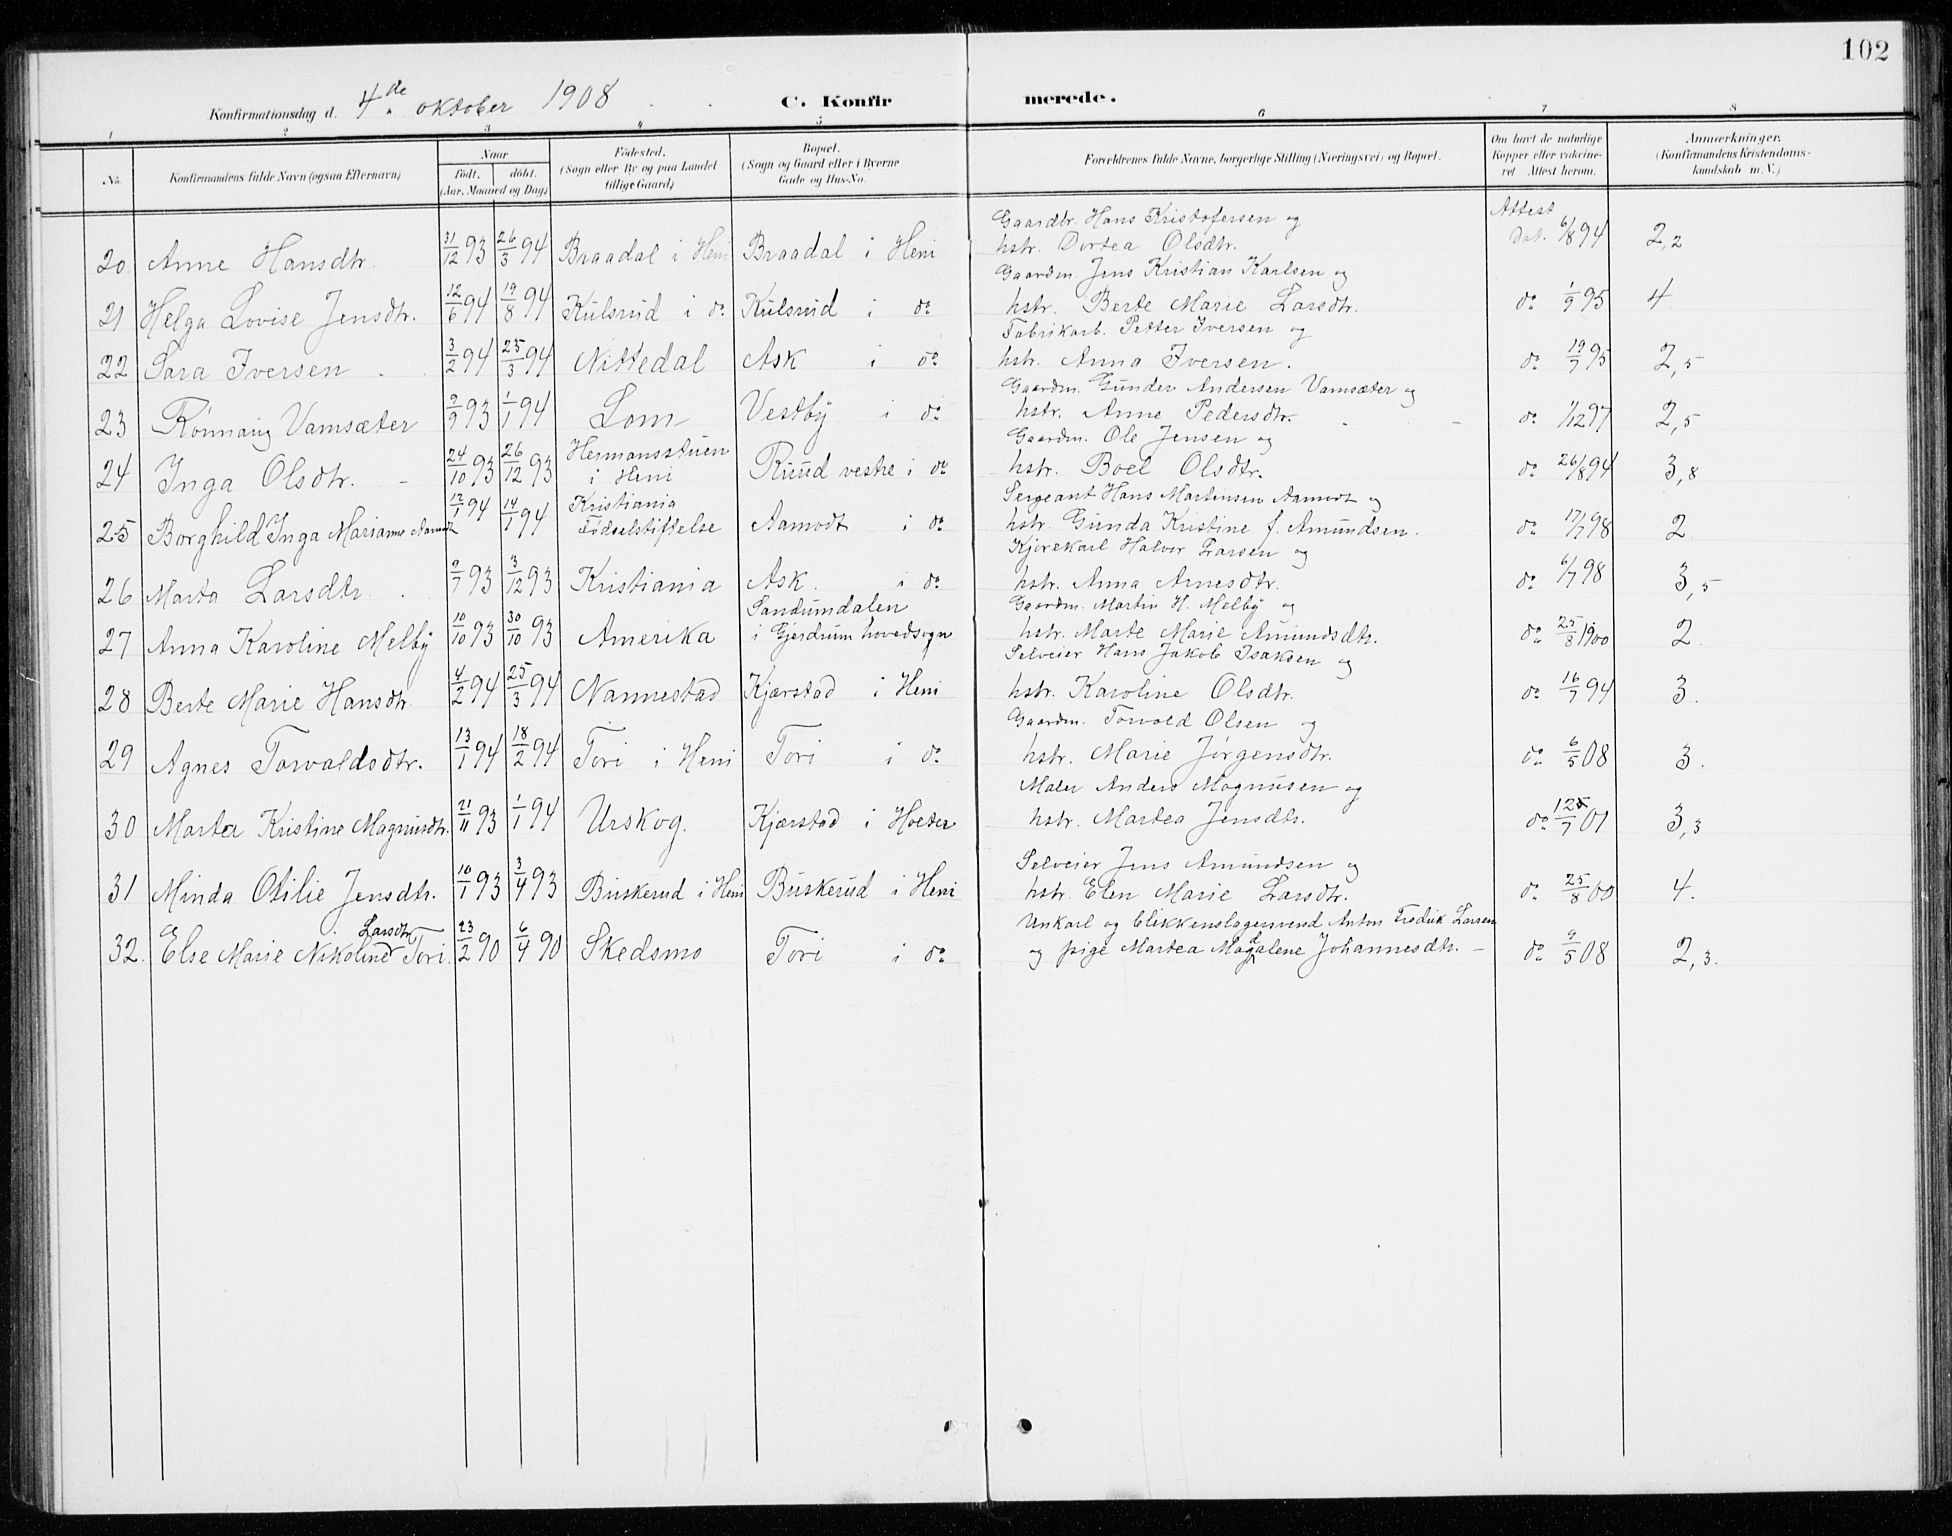 102
Konfirmationsdag d. 4de oktober 1908
C. Konfirmerede.
1 2 3 4 5 6 7 8
No. Konfirmandens fulde Navn (ogsaa Efternavn) Naar födt. döbt. (Aar, Maaned og Dag) Födested. (Sogn eller By og paa Landet tillige Gaard) Bopæl. (Sogn og Gaard eller i Byerne Gade og Hus-No. Forældrenes fulde Navne, borgerlige Stilling (Næringsvei) og Bopæl. Om havt de naturlige Kopper eller vakcineret Attest herom. Anmærkninger. (Konfirmandens Kristendomskundskab m. V.)
Gaardbr. Hans Kristofersen og Attest
20 Anne Hansdtr. 31/12 93 26/3 94 Braadal i Heni Braadal i Heni hstr. Dortea Olsdtr. Dat. 6/8 94 2,2
Gaardm. Jens Kristian Karlsen og
21 Helga Lovise Jensdtr. 12/6 94 19/8 94 Kulsrud i do Kulsrud i do hstr. Berte Marie Larsdtr. do 1/9 95 4
Fabrikarb. Petter Iversen og
22 Sara Iversen 3/2 94 25/3 94 Nittedal Ask i do hstr. Anna Iversen. do 19/7 95 2,5
Gaardm. Gunder Andersen Vamsæter og
23 Rönnaug Vamsæter 9/9 93 1/1 94 Lom Vestby i do hstr. Anne Pedersdtr. do 1/12 97 2,5
Gaardm. Ole Jensen og
24 Inga Olsdtr. 24/10 93 26/12 93 Hermansstuen i Heni Ruud vestre i do hstr. Boel Olsdtr. do 26/8 94 3,8
Sergeant Hans Martinsen Aamodt og
25 Borghild Inga Marianne Aamodt 12/1 94 14/1 94 Kristiania Fødselstiftelse Aamodt i do hstr. Gunda Kristine f. Amundsen. do 17/7 98 2
Kjørekarl Halvor Larsen og
26 Marta Larsdtr. 9/7 93 3/12 93 Kristiania Ask. i do hstr. Anna Arnesdtr. do 6/7 98 3,5
Gaardm. Martin H. Melby og
27 Anna Karoline Melby 10/10 93 30/10 93 Amerika Sandumdalen i Gjerdrum hovedsogn hstr. Marte Marie Amundsdtr. do 25/8 1900 2.
Selveier Hans Jakob Isaksen og
28 Berte Marie Hansdtr. 4/2 94 25/3 94 Nannestad Kjærstad i Heni hstr. Karoline Olsdtr. do 16/7 94 3.
Gaardm. Torvald Olsen og
29 Agnes Torvaldsdtr. 13/1 94 18/2 94 Tori i Heni Tori i do hstr. Marie Jörgensdtr. do 6/5 08 3.
Maler Anders Magnusen og
30 Marta Kristine Magnusdtr. 21/11 93 1/1 94 Urskog. Kjærstad i Holter hstr. Martea Jensdtr. do 12/7 01 3,3
Selveier Jens Amundsen og
31 Minda Otilie Jensdtr. 10/1 93 3/4 93 Buskerud i Heni Buskerud i Heni hstr. Elen Marie Larsdtr. do 25/8 00 4.
Larsdtr. Unkarl og blikkenslagersvend Anton Fredrik Larsen
32. Else Marie Nikoline Tori. 23/2 90 6/4 90 Skedsmo Tori i do og pige Martea Magdalene Johannesdtr. do 9/5 08 2,3.